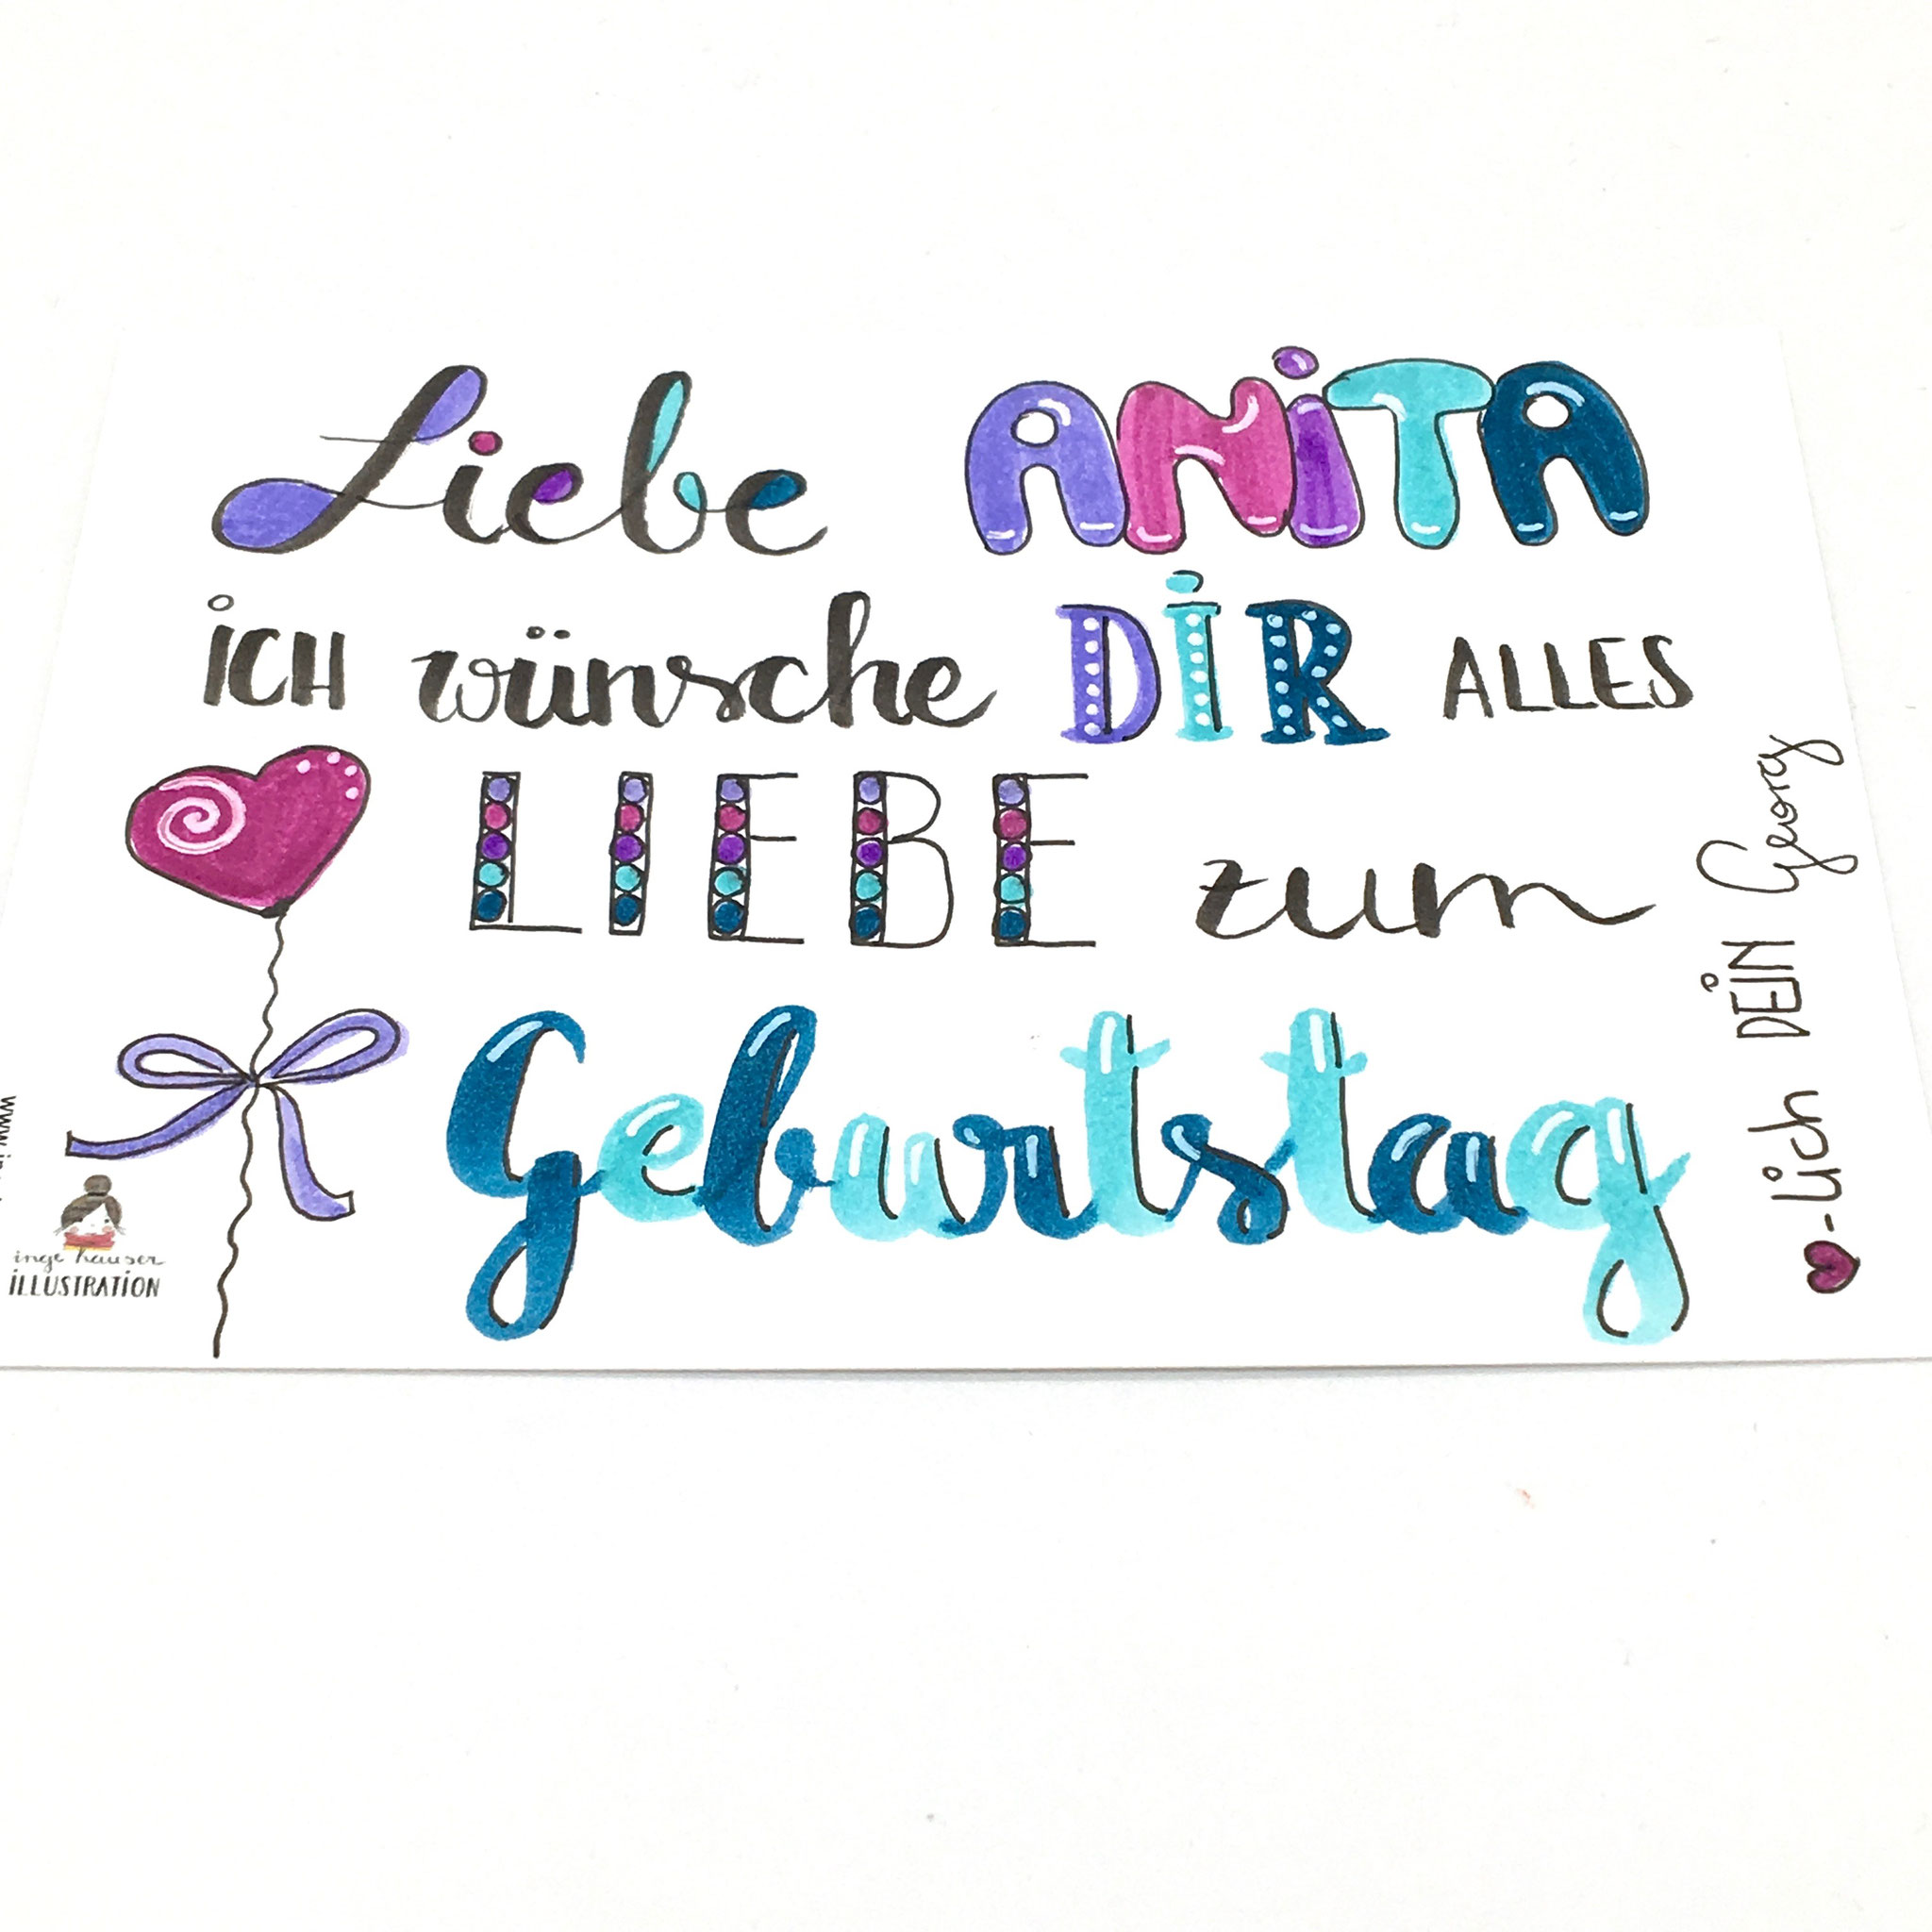 Liebe ANiTA
iCH wünsche DiR ALLES
LIEBE zum
Geburtstag
♥-lich DEiN Georg
inge hauser
iLLUSTRATiON